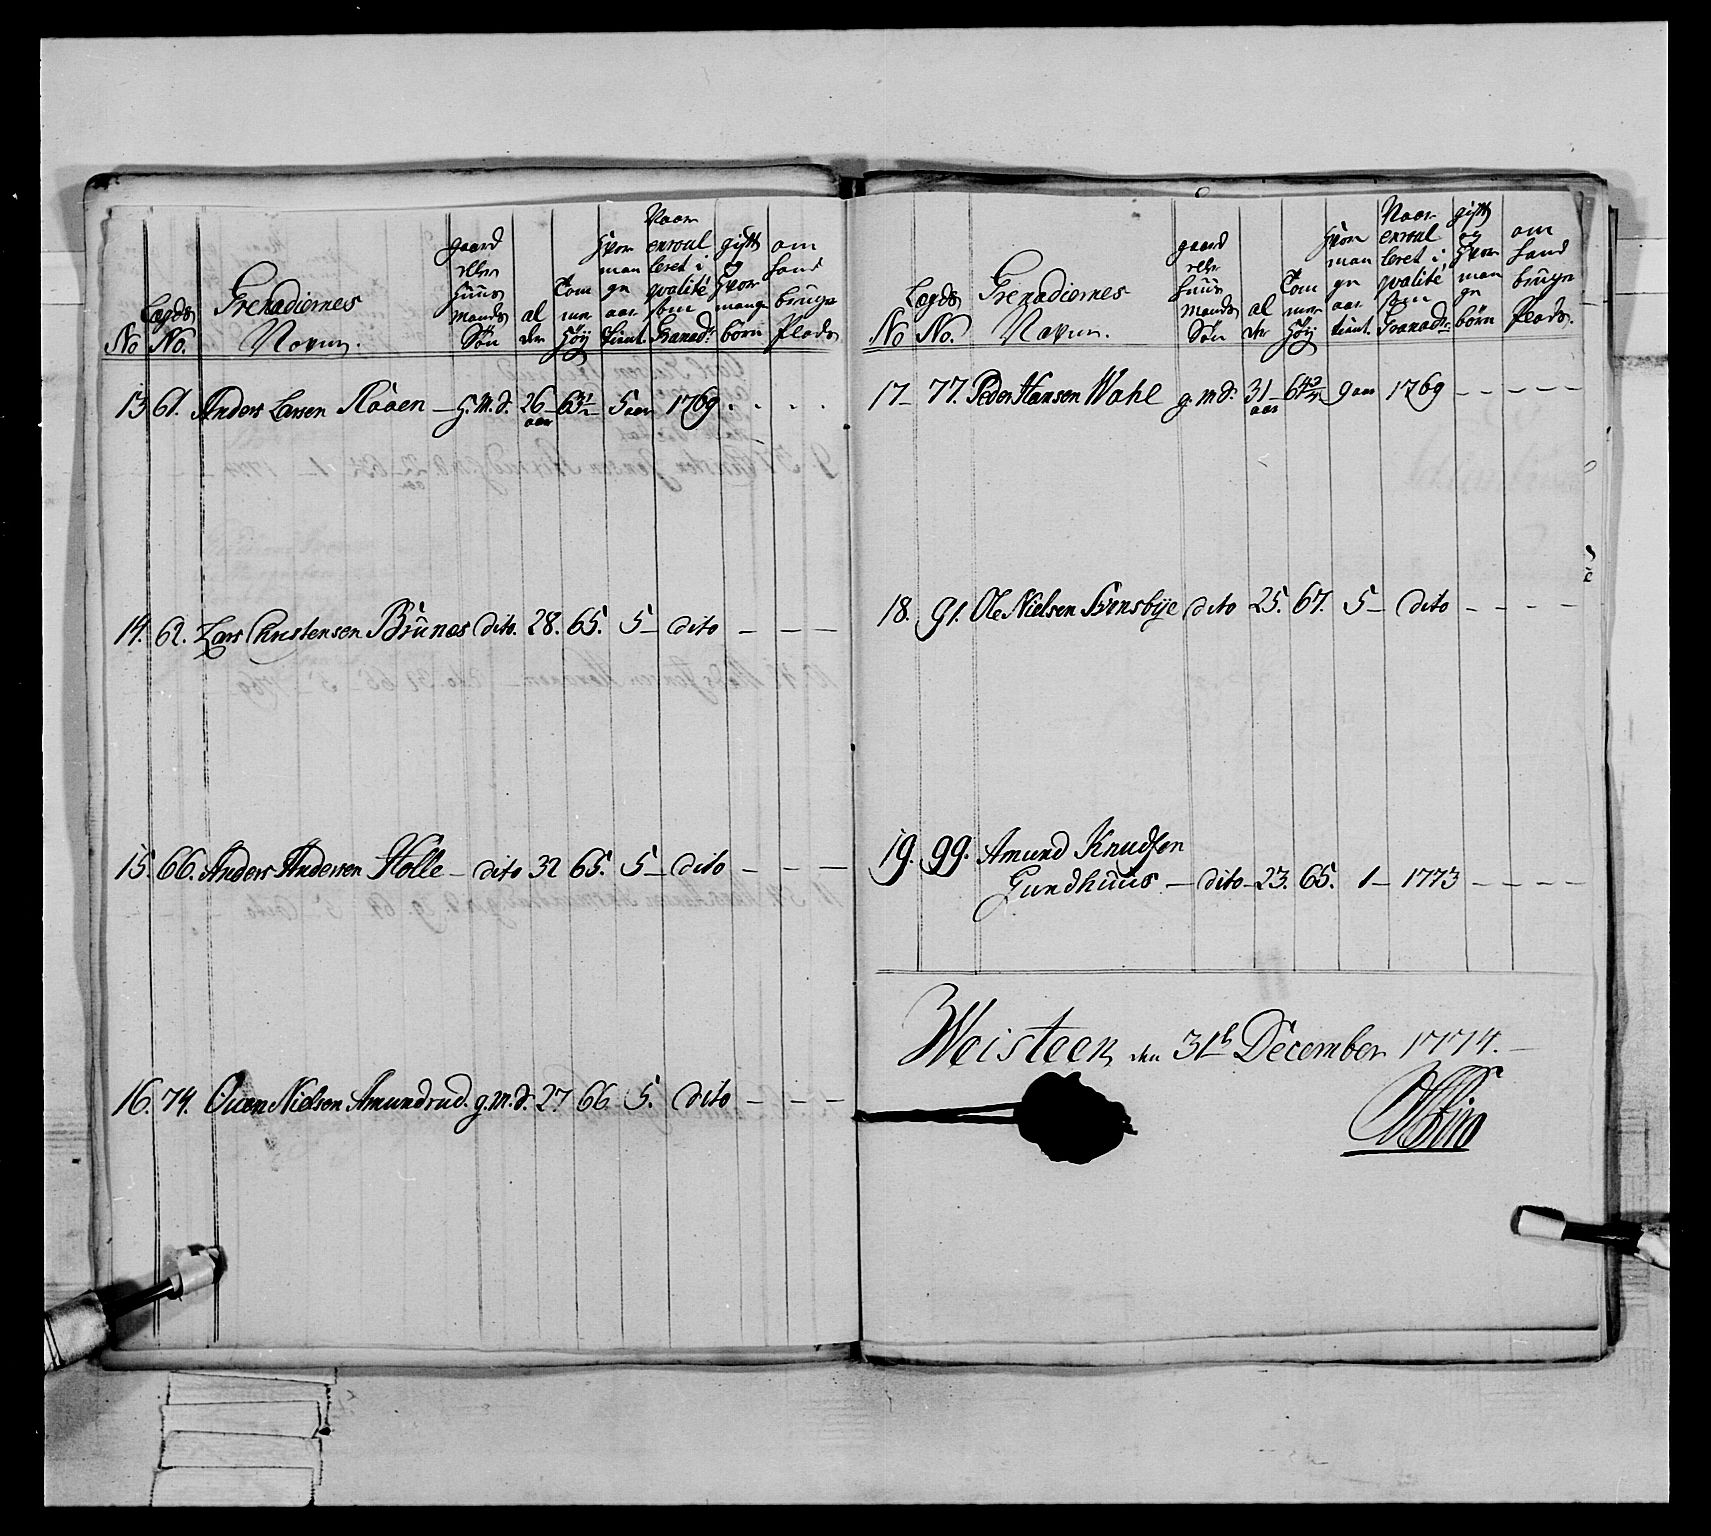 No
Legds No.
Grenadiernes Navne.
gaard eller huus mands Sön
al der
Tom mer Höy
hvor man ge aar tient.
Naar enroul leret i qvalité som Granadr:
gift og hvor mange börn
om hand bruger Plads
13 61. Anders Larsen Rööen – H.M.S. 26 aar 63½ 5 aar 1769. . . .
14. 62. Lars Christensen Brûnæs dito. 28. 65. 5 – dito – – –
15. 66. Anders Andersen Holle – dito 32 65. 5 – dito – – –
16. 74. Ouen Nielsen Amundrud. g.m.S. 27. 66. 5. dito – – –
No
Legds No.
Grenadiernes Navne.
gaard eller huus mands Sön
al der
Tom mer Höy
hvor man ge aar tient.
Naar enroul leret i qvalité som Granadr:
gift og hvor man ge börn
om hand bruger Plads.
17 – 77. Peder Hansen Wahl g.m.S. 31 – aar 64 9 aar 1769 – – – –
18. 91. Ole Nielsen Svensbÿe dito 25. 67. 5 – dito – – – –
19. 99. Amund Knudsen
Gundhuus – dito – 23. 65. 1 – 1773 – – – –
Woisteen den 31t December 1774. –